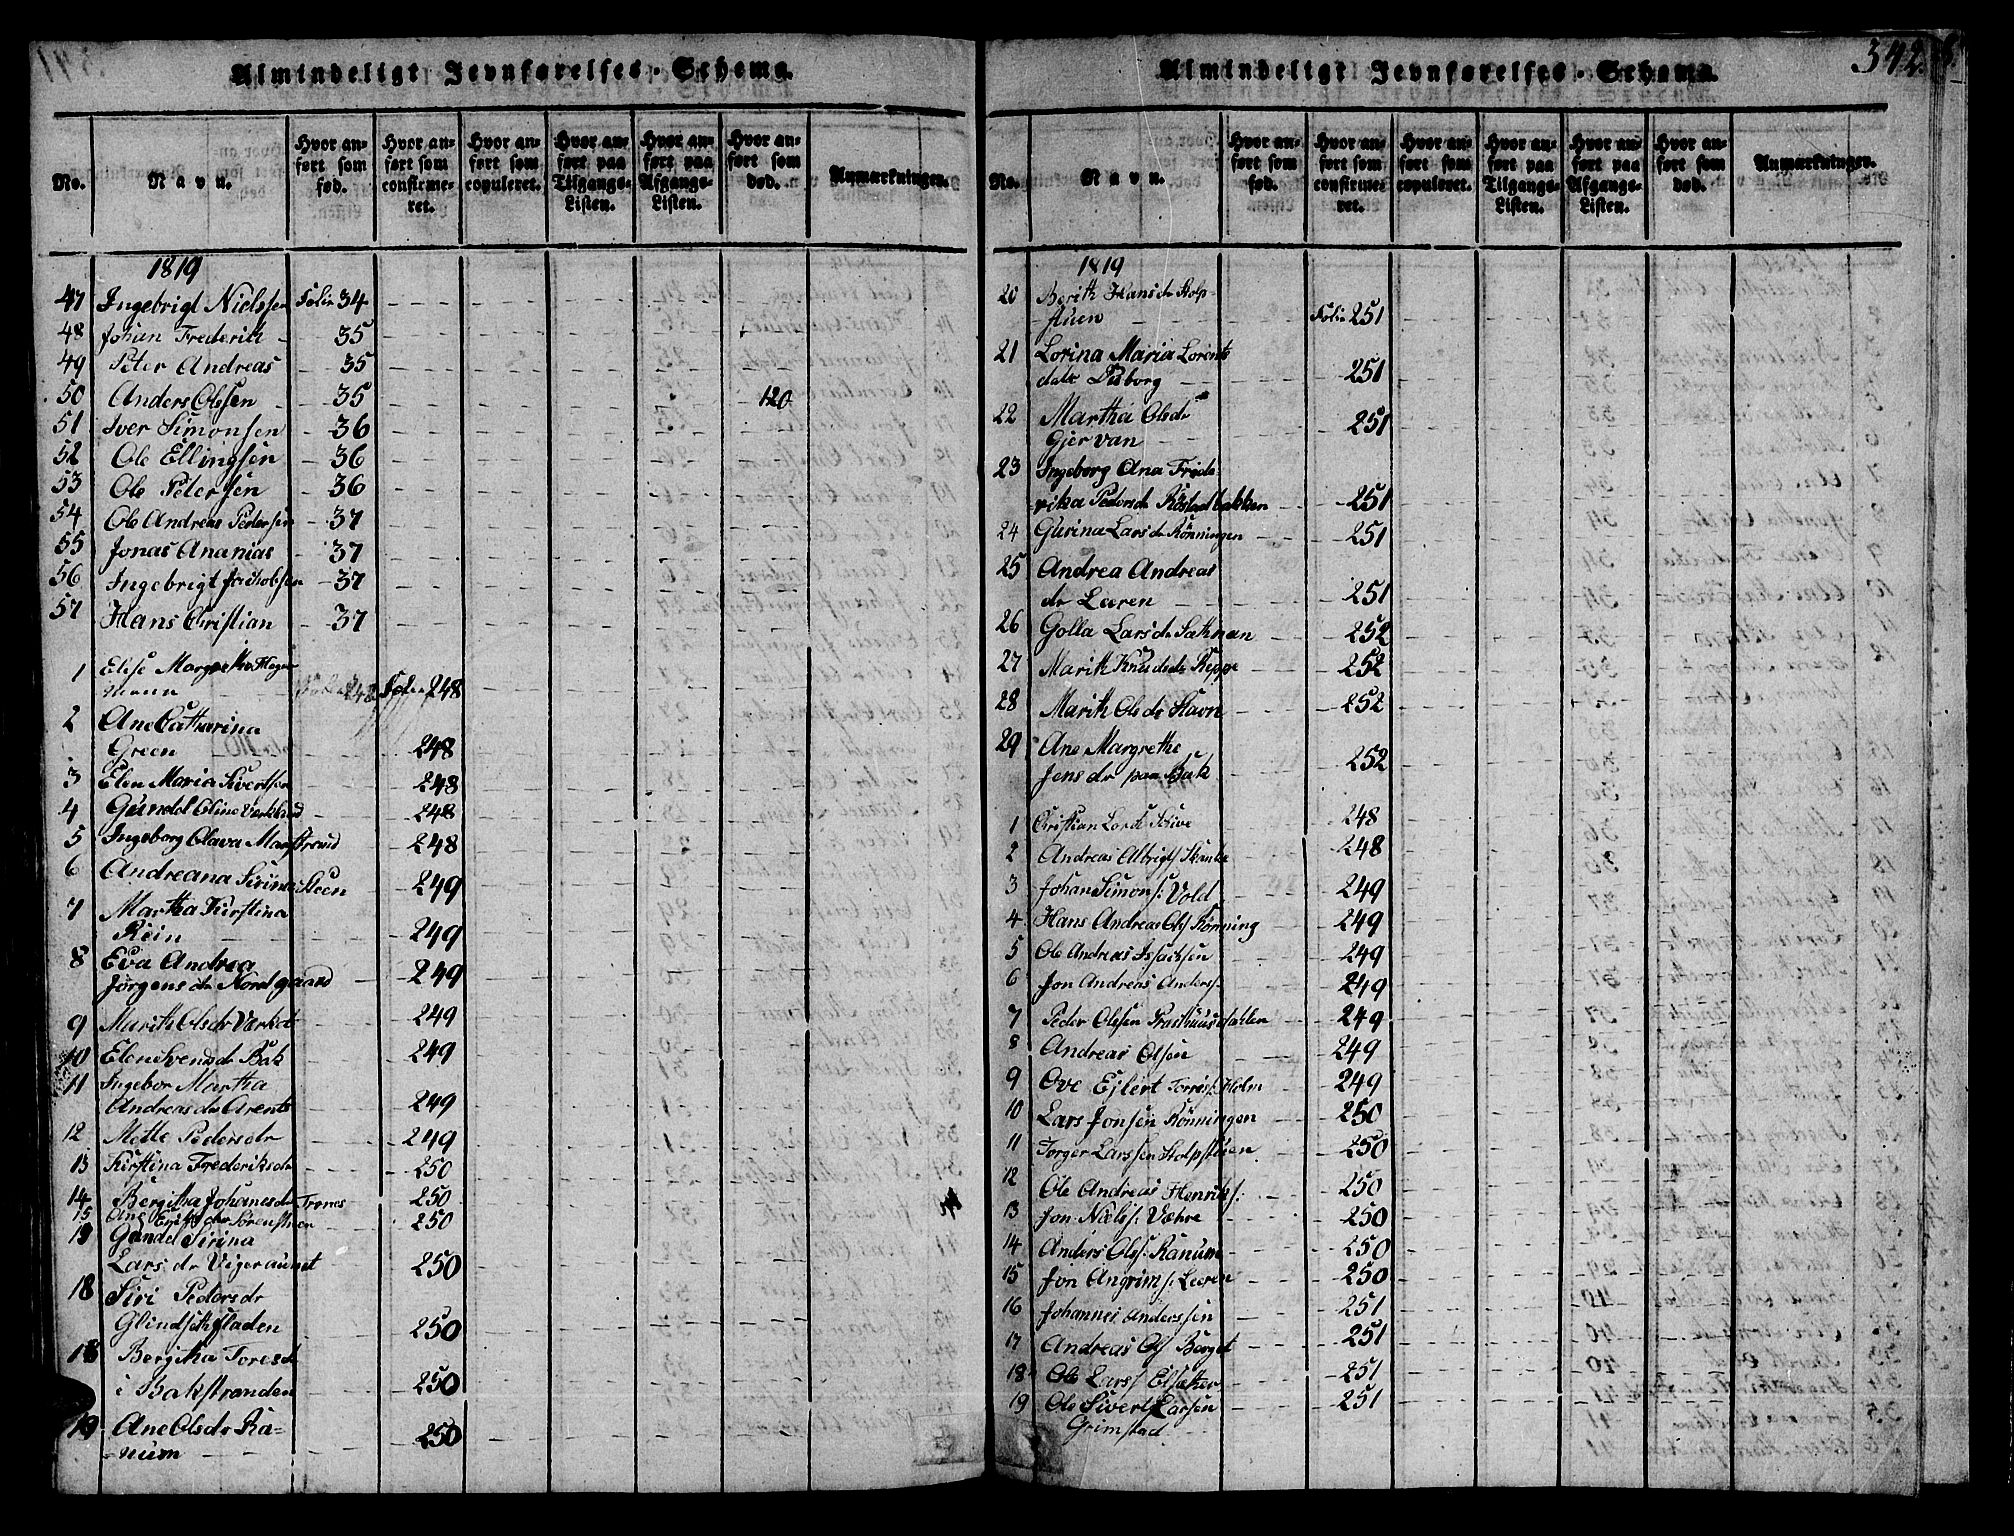 Almindeligt Jevnførelses-Schema.
No.
Navn.
Hvor anført som fød.
Hvor anført som confirmeret.
Hvor anført som copuleret.
Hvor anført paa Tilgangs-Listen.
Hvor anført paa Afgangs-Listen.
Hvor anført som død.
Anmærkninger.
1819
47 Ingebrigt Nielssen Folio 34
48 Johan Frederik 35
49 Peter Andreas 35
50 Anders Olssen 35 120
51 Iver Simonsen 36
52 Ole Ellingsen 36
53 Ole Petersen 36
54 Ole Andreas Pedersen 37
55 Jonas Ananias 37
56 Ingebrigt Jakobsen 37
57 Hans Christian 37
1 Elise Margrethe Hage-
mann Folio 248 Folio 248
2 Ane Catharina
Green 248
3 Elen Maria Sivertsen 248
4 Gunild Oline 248
5 Ingeborg Olava Marstrand 248
6 Andreana Sirina Steen 249
7 Martha Kirstina
Rein 249
8 Eva Andrea
Jörgensdr Nordgaard 249
9 Marith Olsdr 249
10 Elene Svendsdr Bak 249
11 Ingebor Martha
Andreasdr Arents 249
12 Mette Pedersdr 249
13 Kirstina Frederiksdr 250
14 Bergitha Johanesdr Trones 250
15 Ane 250
Gundel Sirina
Larsdr Vigeraunet 250
18 Siri Pedersdr
Glindsethfladen 250
18 Bergitha Toresd
i Bakstranden 250
19 Ane Olsdr Ra-
num 250
342.
Almindeligt Jevnførelses-Schema.
No.
Navn.
Hvor anført som fød.
Hvor anført som confirmeret.
Hvor anført som copuleret.
Hvor anført paa Tilgangs-Listen.
Hvor anført paa Afgangs-Listen.
Hvor anført som død.
Anmærkninger.
1819
20 Berith Hansdr Stolp-
stuen Folio 251
21 Lorina Maria Lorents
datr 251
22 Martha Olsdr
Gjervan 251
23 Ingeborg Ana Fride-
rika Pedersdr Röstadbakken 251
24 Gurina Larsdr Rönningen 251
25 Andrea Andreas
dr Leeren 251
26 Golla Larsdr Sathnan 252
27 Marith Knudsdr Reppe 252
28 Marith Olsdr Stavn 252
29 Ane Margrethe
Jensdr paa Bak 252
1 Christian Lordt Schive 248
2 Andreas Albrigts 248
3 Johan Simons: Vold 249
4 Hans Andreas Ols Rönning 249
5 Ole Andreas Isachsen 249
6 Jon Andreas Anders: 249
7 Peder Olssen Prasthuusdahlen 249
8 Andreas Olsen 249
9 Ove Ejlert Torris: Holm 249
10 Lars Jonsen Rönningen 250
11 Torger Larssen Stolpstuen 250
12 Ole Andreas Henriks: 250
13 Jon Niels: Væhre 250
14 Anders Ols: Ranum 250
15 Jon Angrims: Leeren 250
16 Johannes Anderssen 251
17 Andreas Ols Berget 251
18 Ole Lars: Elsæther 251
19 Ole Sivert Larsen 251
Grimstad